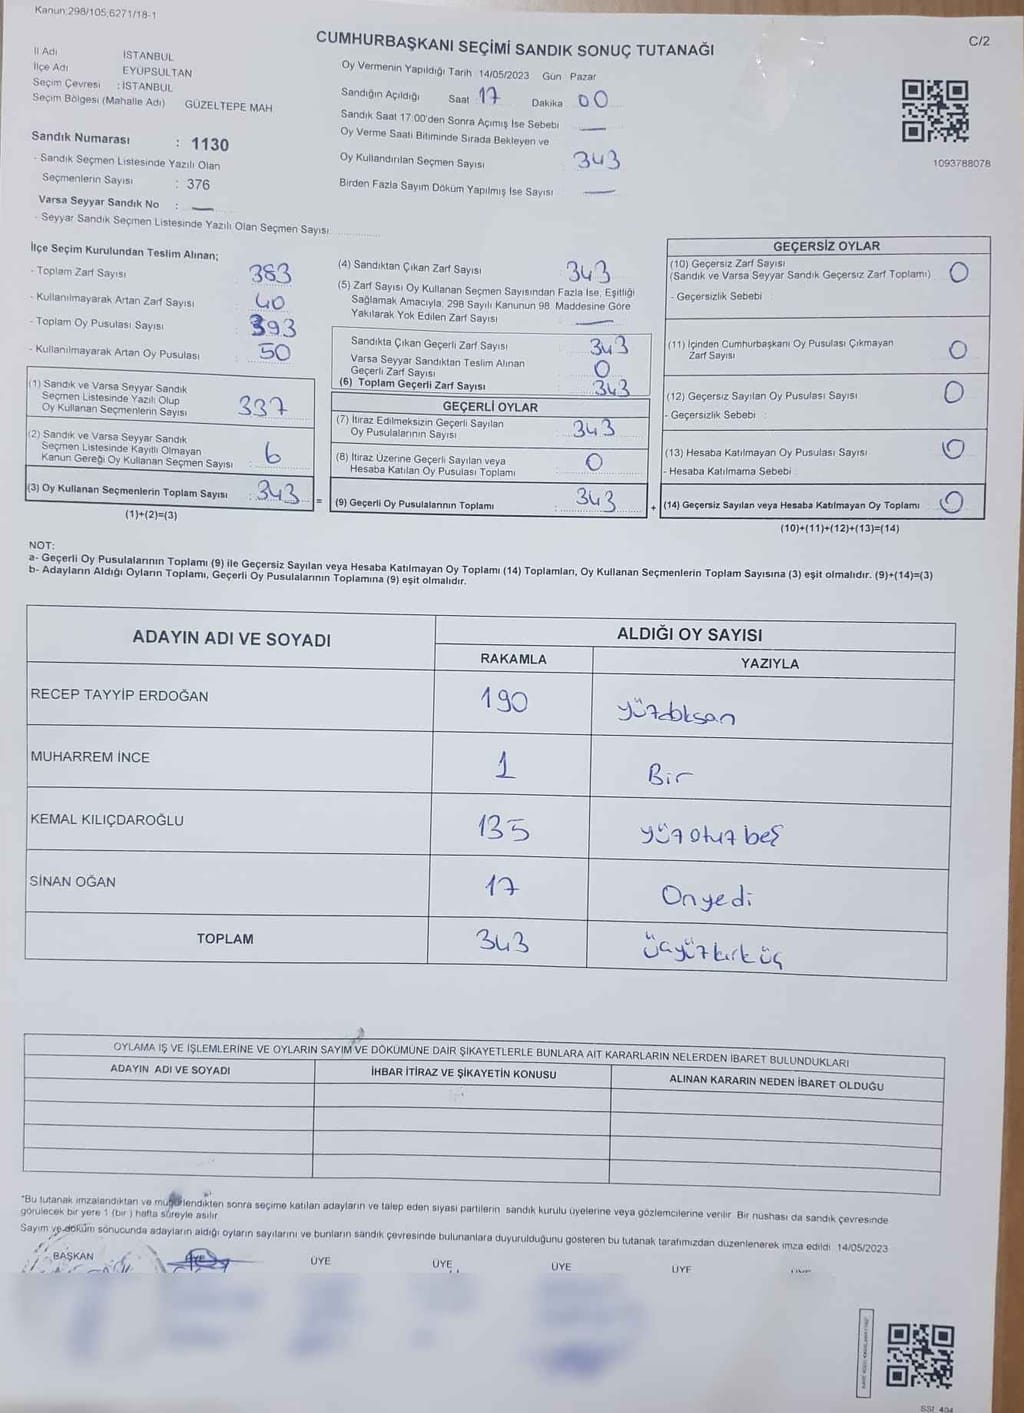 Kanun:298/105,6271/18-1
C/2
CUMHURBAŞKANI SEÇİMİ SANDIK SONUÇ TUTANAĞI
İl Adı İSTANBUL
İlçe Adı EYÜPSULTAN
Seçim Çevresi : İSTANBUL
Seçim Bölgesi (Mahalle Adı) GÜZELTEPE MAH
Sandık Numarası : 1130
- Sandık Seçmen Listesinde Yazılı Olan
Seçmenlerin Sayısı : 376
Varsa Seyyar Sandık No : —
- Seyyar Sandık Seçmen Listesinde Yazılı Olan Seçmen Sayısı
Oy Vermenin Yapıldığı Tarih 14/05/2023 Gün Pazar
Sandığın Açıldığı Saat 17 Dakika 00
Sandık Saat 17:00'den Sonra Açımış İse Sebebi —
Oy Verme Saati Bitiminde Sırada Bekleyen ve
Oy Kullandırılan Seçmen Sayısı 343
Birden Fazla Sayım Döküm Yapılmış İse Sayısı —
1093788078
İlçe Seçim Kurulundan Teslim Alınan;
- Toplam Zarf Sayısı 383
- Kullanılmayarak Artan Zarf Sayısı 40
- Toplam Oy Pusulası Sayısı 393
- Kullanılmayarak Artan Oy Pusulası 50
(1) Sandık ve Varsa Seyyar Sandık
Seçmen Listesinde Yazılı Olup
Oy Kullanan Seçmenlerin Sayısı 337
(2) Sandık ve Varsa Seyyar Sandık
Seçmen Listesinde Kayıtlı Olmayan
Kanun Gereği Oy Kullanan Seçmen Sayısı 6
(3) Oy Kullanan Seçmenlerin Toplam Sayısı : 343 =
(1)+(2)=(3)
(4) Sandıktan Çıkan Zarf Sayısı 343
(5) Zarf Sayısı Oy Kullanan Seçmen Sayısından Fazla İse, Eşitliği
Sağlamak Amacıyla, 298 Sayılı Kanunun 98 Maddesine Göre
Yakılarak Yok Edilen Zarf Sayısı —
Sandıkta Çıkan Geçerli Zarf Sayısı 343
Varsa Seyyar Sandıktan Teslim Alınan
Geçerli Zarf Sayısı 0
(6) Toplam Geçerli Zarf Sayısı 343
GEÇERLİ OYLAR
(7) İtiraz Edilmeksizin Geçerli Sayılan
Oy Pusulalarının Sayısı 343
(8) İtiraz Üzerine Geçerli Sayılan veya
Hesaba Katılan Oy Pusulası Toplamı 0
(9) Geçerli Oy Pusulalarının Toplamı 343 +
GEÇERSİZ OYLAR
(10) Geçersiz Zarf Sayısı
(Sandık ve Varsa Seyyar Sandık Geçersiz Zarf Toplamı) 0
- Geçersizlik Sebebi :
(11) İçinden Cumhurbaşkanı Oy Pusulası Çıkmayan
Zarf Sayısı 0
(12) Geçersiz Sayılan Oy Pusulası Sayısı 0
- Geçersizlik Sebebi :
(13) Hesaba Katılmayan Oy Pusulası Sayısı 0
- Hesaba Katılmama Sebebi :
(14) Geçersiz Sayılan veya Hesaba Katılmayan Oy Toplamı 0
(10)+(11)+(12)+(13)=(14)
NOT:
a- Geçerli Oy Pusulalarının Toplamı (9) ile Geçersiz Sayılan veya Hesaba Katılmayan Oy Toplamı (14) Toplamları, Oy Kullanan Seçmenlerin Toplam Sayısına (3) eşit olmalıdır. (9)+(14)=(3)
b- Adayların Aldığı Oyların Toplamı, Geçerli Oy Pusulalarının Toplamına (9) eşit olmalıdır.
ADAYIN ADI VE SOYADI
ALDIĞI OY SAYISI
RAKAMLA YAZIYLA
RECEP TAYYİP ERDOĞAN 190 yüzdoksan
MUHARREM İNCE 1 Bir
KEMAL KILIÇDAROĞLU 135 yüzotuzbeş
SİNAN OĞAN 17 Onyedi
TOPLAM 343 üçyüzkırküç
OYLAMA İŞ VE İŞLEMLERİNE VE OYLARIN SAYIM VE DÖKÜMÜNE DAİR ŞİKAYETLERLE BUNLARA AİT KARARLARIN NELERDEN İBARET BULUNDUKLARI
ADAYIN ADI VE SOYADI İHBAR İTİRAZ VE ŞİKAYETİN KONUSU ALINAN KARARIN NEDEN İBARET OLDUĞU
*Bu tutanak imzalandıktan ve mühürlendikten sonra seçime katılan adayların ve talep eden siyasi partilerin sandık kurulu üyelerine veya gözlemcilerine verilir Bir nüshası da sandık çevresinde
görülecek bir yere 1 (bir) hafta süreyle asılır
Sayım ve döküm sonucunda adayların aldığı oyların sayılarını ve bunların sandık çevresinde bulunanlara duyurulduğunu gösteren bu tutanak tarafımızdan düzenlenerek imza edildi 14/05/2023
BAŞKAN ÜYE ÜYE ÜYE ÜYE ÜYE